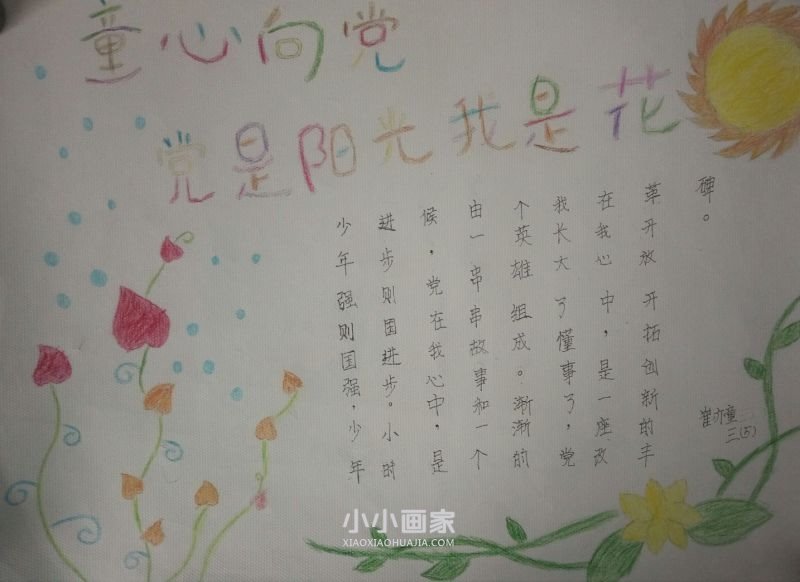 童心向党
党是阳光我是花
少年强则国强，少年
进步则国进步。小时
候，党在我心中，是
由一串串故事和一个
个英雄组成。渐渐的
我长大了懂事了，党
在我心中，是一座改
革开放开拓创新的丰
碑。
崔亦童
三(5)
小小画家
XIAOXIAOHUAJIA.COM